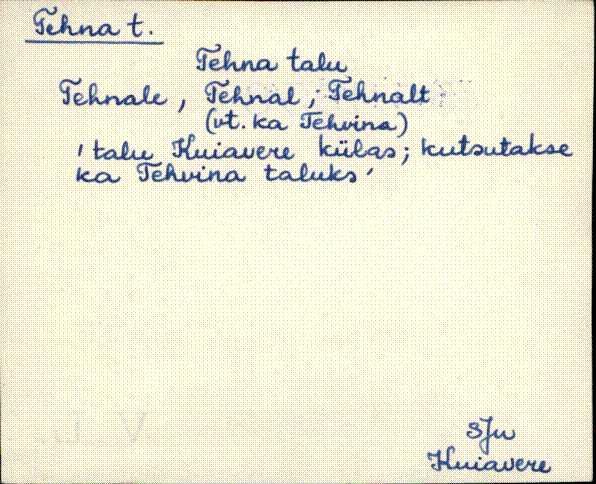 Tehna t.
Tehna talu
Tehnale, Tehnal, Tehnalt
(vt. ka Tehvina)
'talu Kuiavere külas; kutsutakse
ka Tehvina taluks'
SJn
Kuiavere